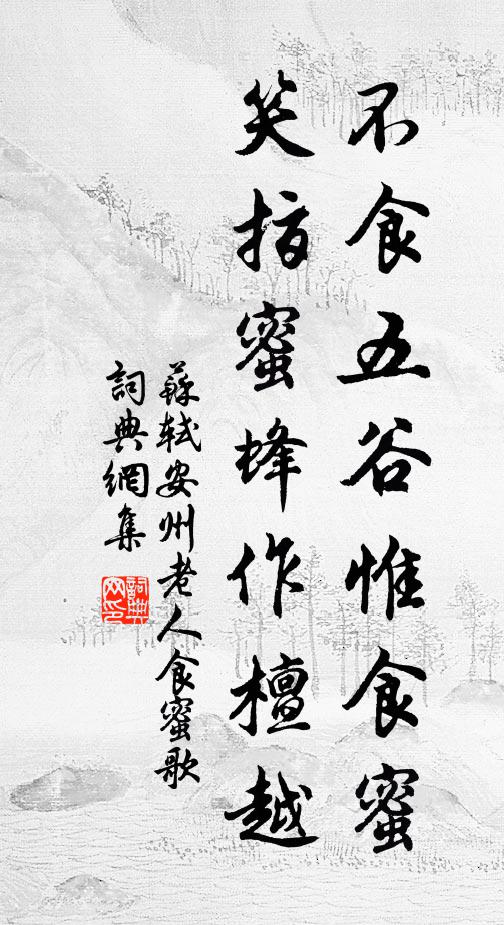 不食五谷惟食蜜
笑指蜜蜂作檀越
蘇軾安州老人食蜜歌
詞典網集